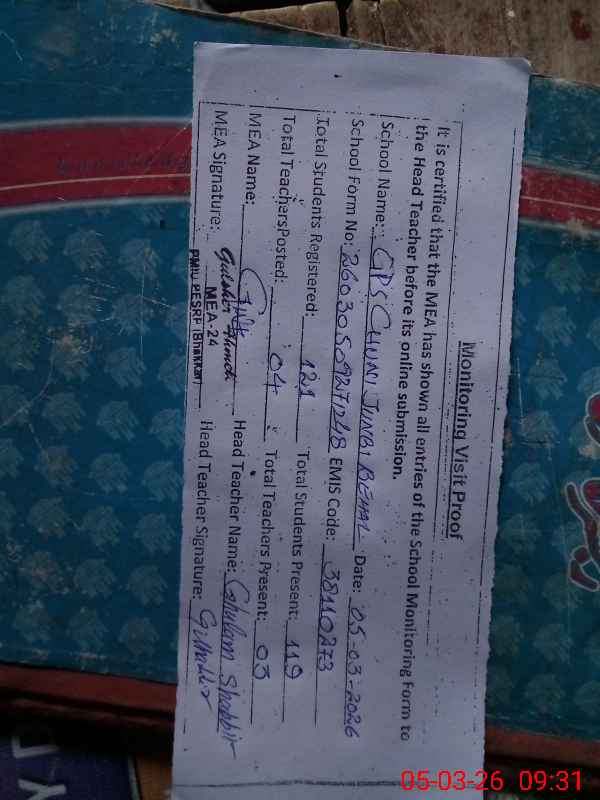 Monitoring Visit Proof
It is certified that the MEA has shown all entries of the School Monitoring Form to
the Head Teacher before its online submission.
School Name: GPS CHUNI JUNBI BEHAL Date: 05-03-2026
School Form No: 2603050927248 EMIS Code: 38110273
Total Students Registered: 121 Total Students Present: 119
Total Teachers Posted: 04 Total Teachers Present: 03
MEA Name: Head Teacher Name: Ghulam Shabbir
MEA Signature: Head Teacher Signature:
MEA-24
PMIU PESRP (Bhakkar)
05-03-26 09:31